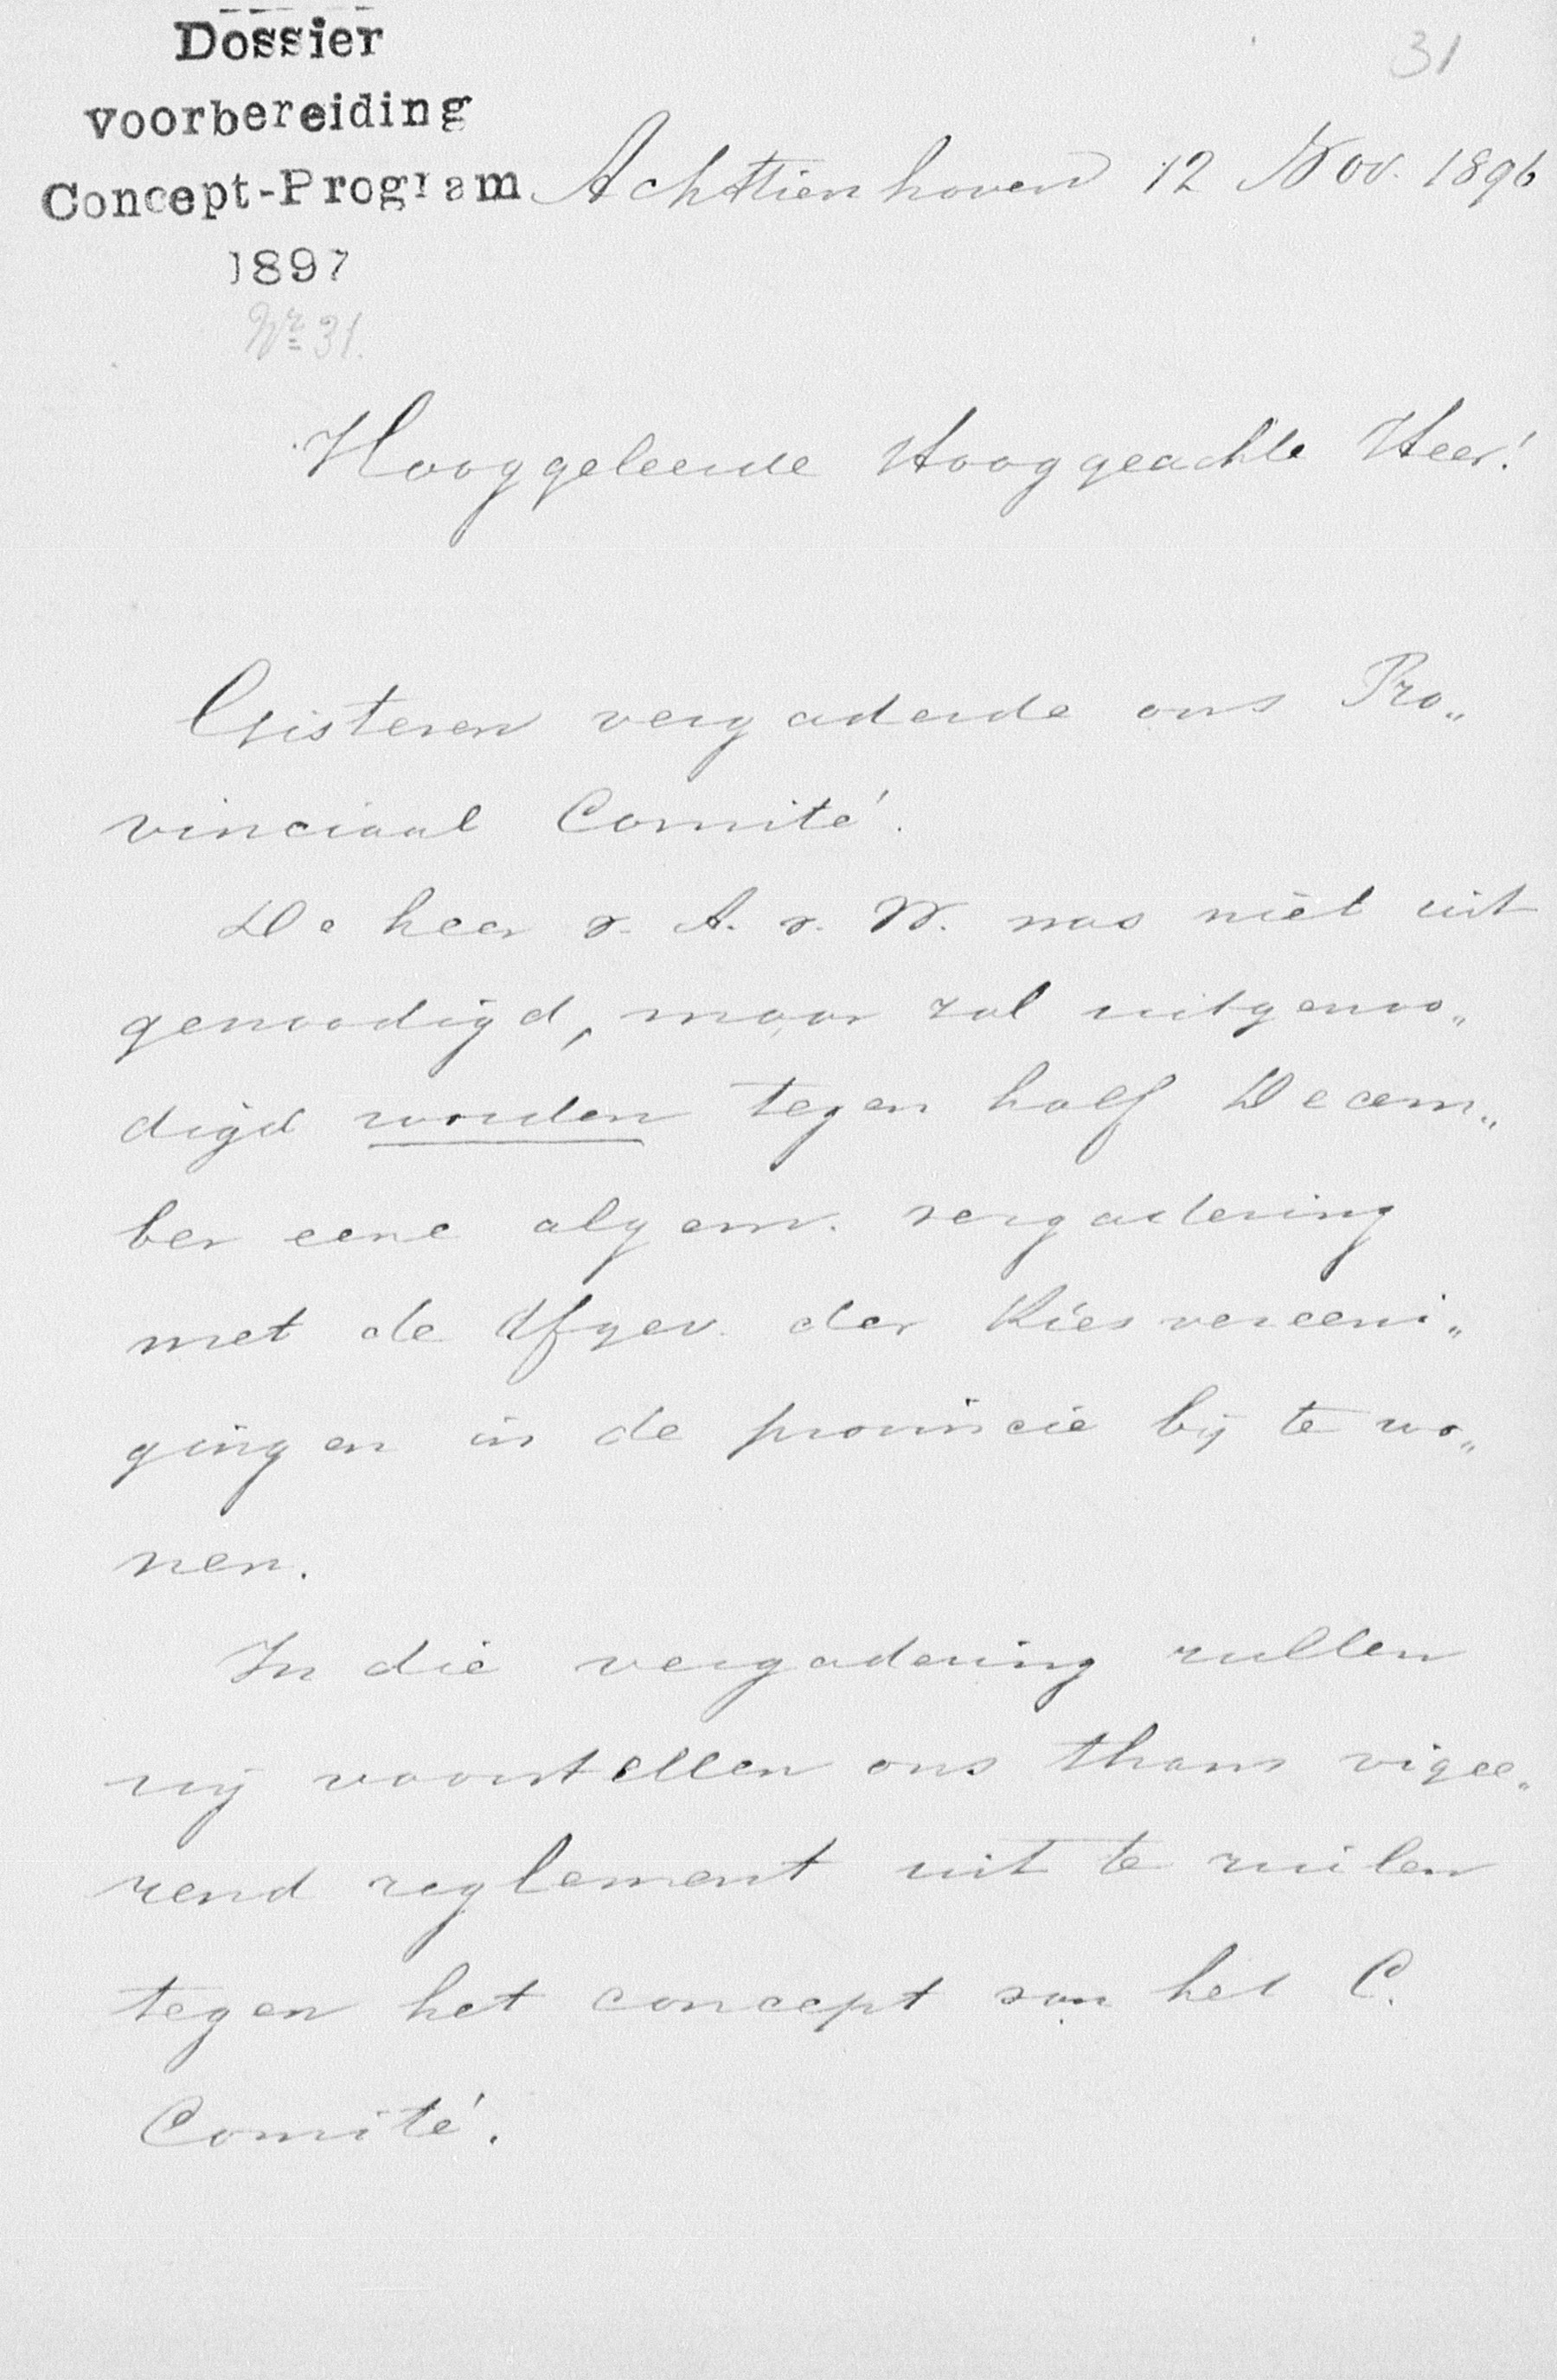 Dossier
31
voorbereiding
Concept-Program Achttienhoven 12 Nov. 1896
1897
Nr 31.
Hooggeleerde Hooggeachte Heer!
Gisteren vergaderde ons Pro„
vinciaal Comité.
De heer v. A. v. W. was niet uit
genoodigd, maar zal uitgenoo„
digd worden tegen half Decem„
ber eene algem. vergadering
met de Afgev. der Kiesvereeni„
gingen in de provincie bij te wo„
nen.
In die vergadering zullen
wij voorstellen ons thans vigee„
rend reglement uit te ruilen
tegen het concept van het C.
Comité.